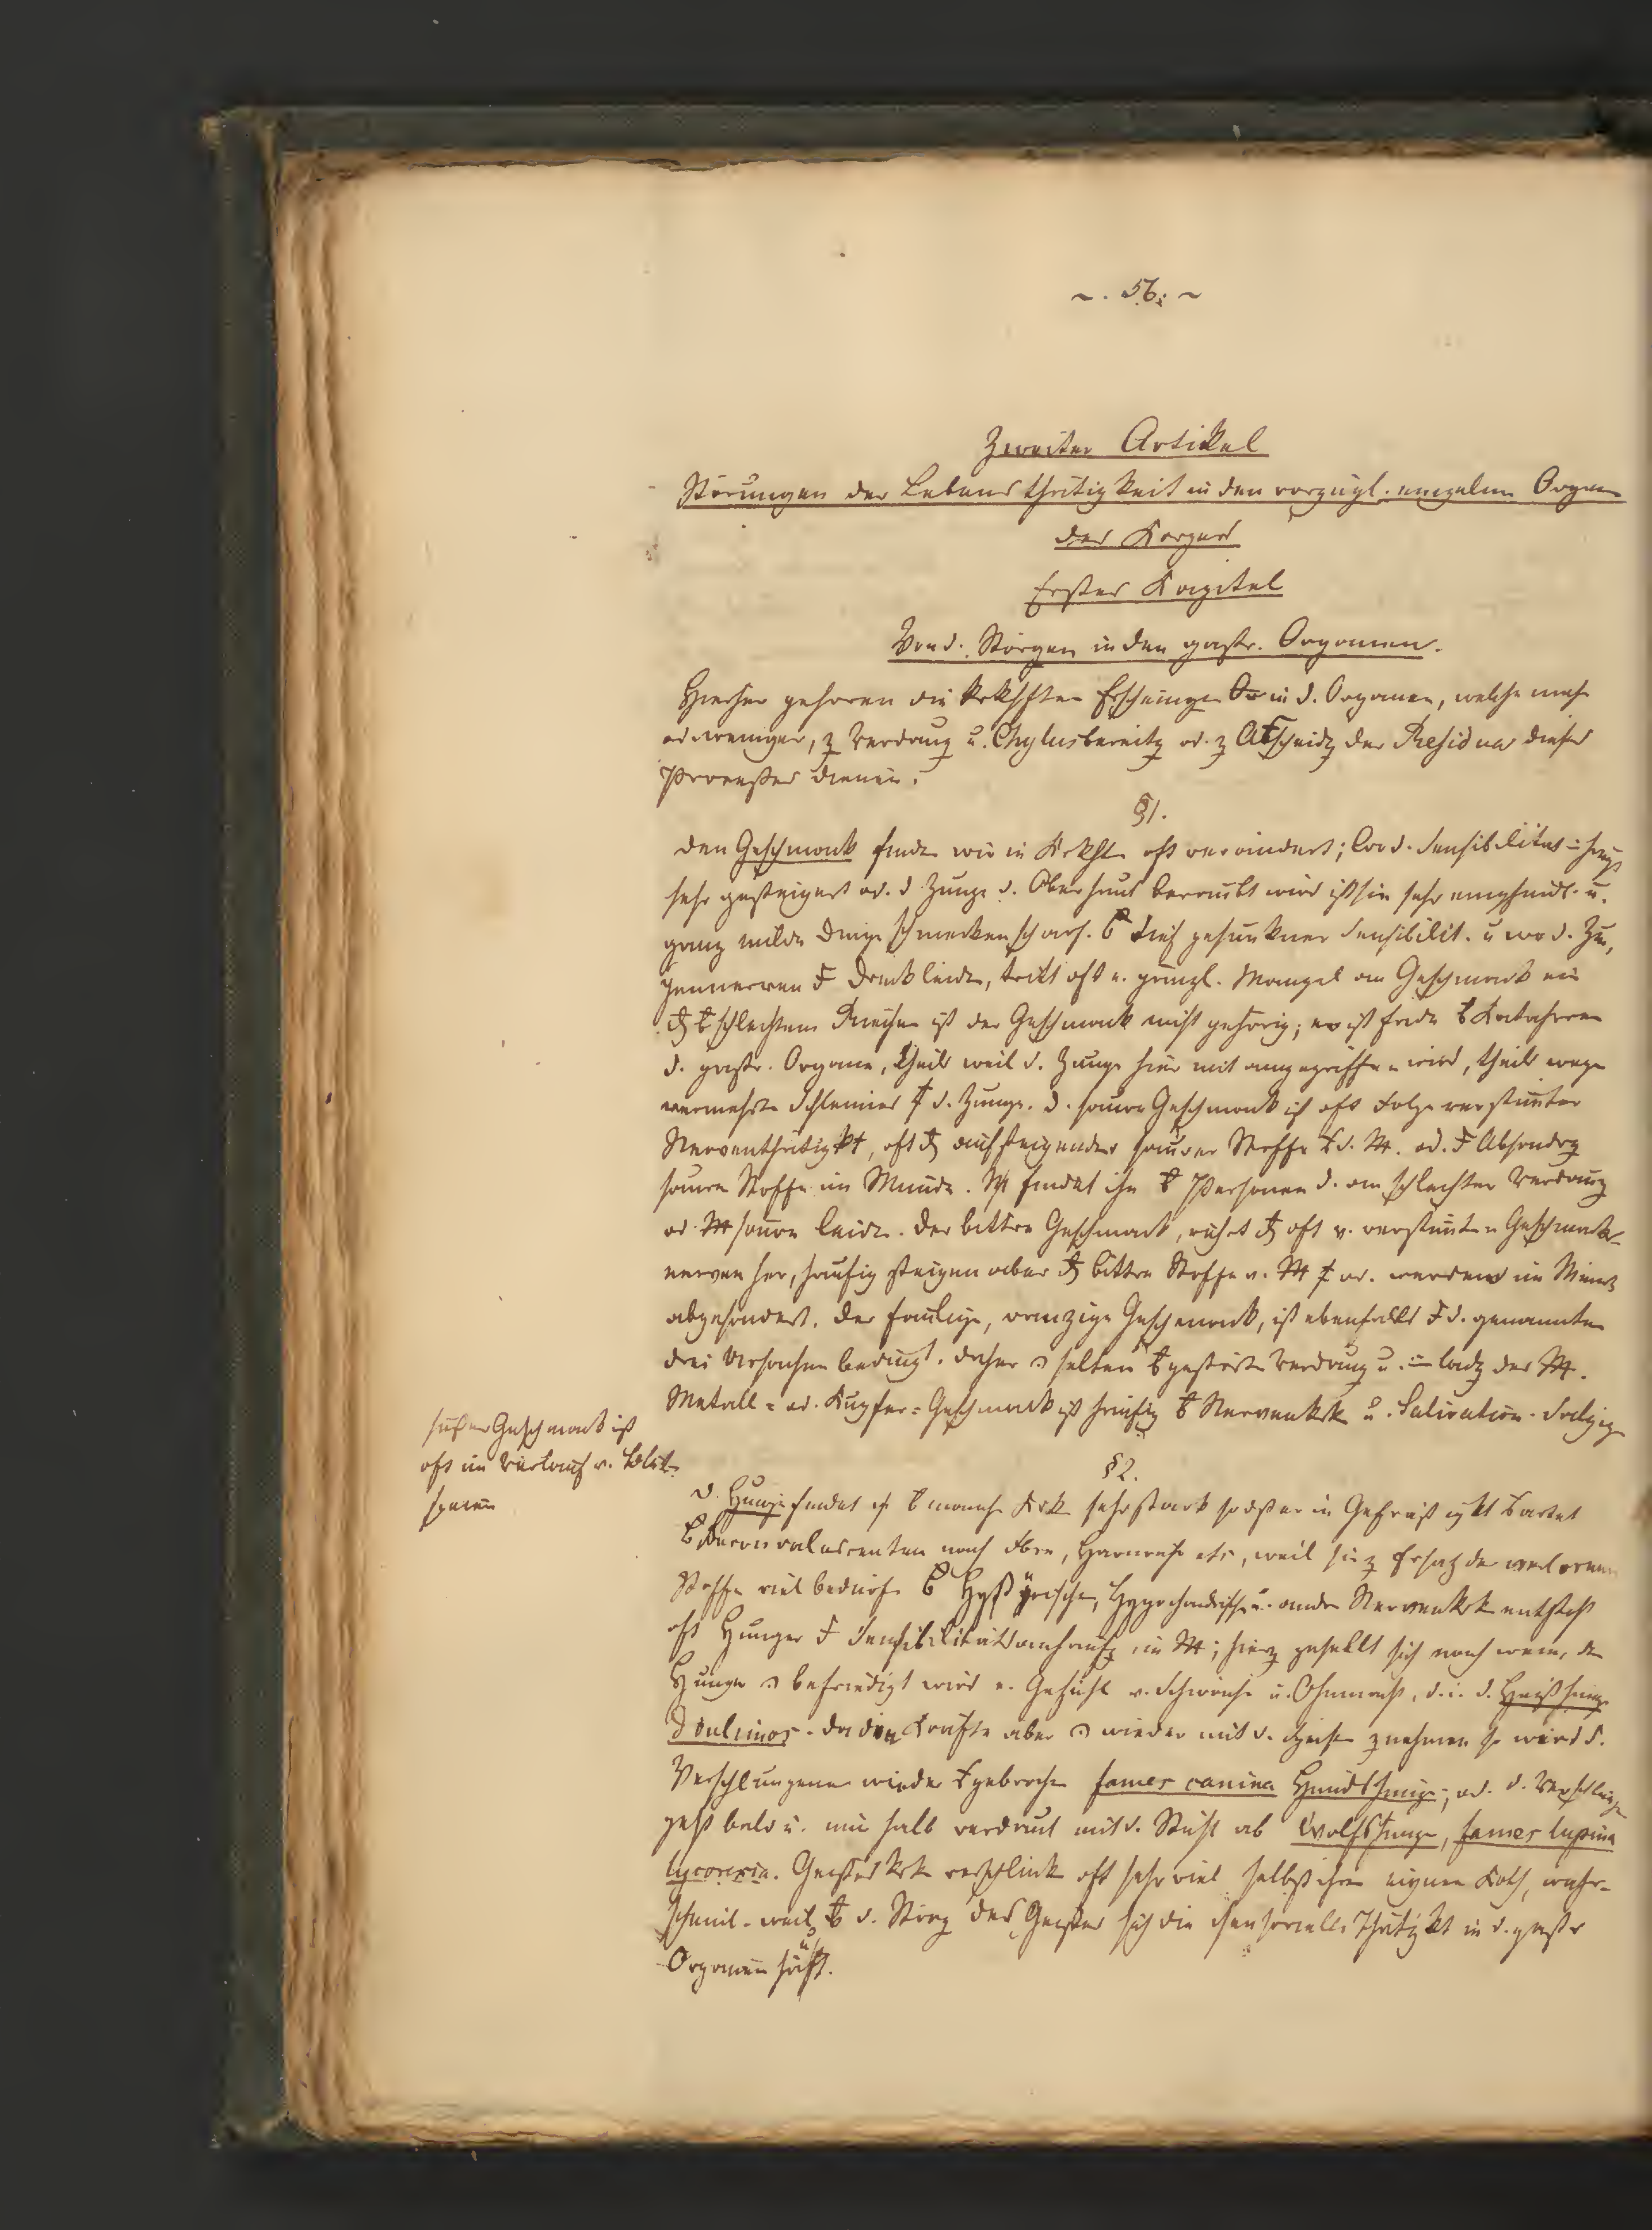 ~. 56. ~
Zweiter Artikel
Störungen der Lebensthätigkeit in den vorzügl. einzelnen Organen
des Körpers
Erstes Kapitel
Von d. Störgen in den gastr. Organen.
Hierher gehören die Erscheingen in d. Organen, welche mehr
od. weniger, z Verdauug u. Chylusbereitg od. z Abscheidg der Residua dieses
Processes dienen.
§1.
Den Geschmack finden wir in oft verändert; wo d. Sensibilität
sehr gesteigert od. d Zunge d. Oberhaut beraubt wird ist sie sehr empfindl. u.
ganz milde Dinge schmecken scharf. tief gesunkner Sensibilit. u wo d. Zun,
gennerven Druck leiden, tritt oft e. gänzl. Mangel an Geschmack ein
schlechtem Riechen ist der Geschmack nicht gehörig; er ist fade Katarrhen
d. gastr. Organe, theils weil d. Zunge hier mit angegriffen wird, theils wegen
vermehrten Schleimes d. Zunge. D. saure Geschmack ist oft Folge verstimter
Nerventhätigkt, oft aufsteigender saurer Stoffe d. od. Absondrg
saurer Stoffe im Munde. findet ihn Personen d. an schlechter Verdauug
od. säure leiden. Der bittre Geschmack, rührt oft v. verstimten Geschmacks-
nerven her, häufig steigen aber bittre Stoffe v. od. werden im Munde
abgesondert. Der faulige, ranzige Geschmack, ist ebenfalls d. genannten
drei Ursachen bedingt. Daher selten gestörter Verdauug u. ladg des
Metall- od. Kupfer-Geschmack ist häufig Nervenkrk u. Salivation. Salzig
süßer Geschmack ist
oft im Verlauf v. Blut-
speien
§2.
D. Hunger findet sich manchen Krk sehr stark so dß er in Gefräßigkt artet
Reconvalescenten nach Harnruhr etc, weil sie z Ersatz der verlorenen
Stoffe viel bedürfen Hysterische, Hypochondrische u. andre Nervenkrk entsteht
oft Hunger Sensibilitätsanhäufg im ; hierz gesellt sich noch wenn der
Hunger befriedigt wird e. Gefühl v. Schwäche u. Ohnmacht, d. i. d. Heißhunger
Boulimos. Da die Kräfte aber wieder mit d. Speisen z nehmen so wird d.
Verschlungene wieder gebrochen fames canina Hundshunger; od. d. Verschlungene
geht bald u. nur halb verdaut mit d. Stuhl ab Wolfshunger, fames lupina
lycorexia. Geisteskrk verschlucken oft sehr viel selbst ihren eignen Koth, wahr-
scheinl. weil d. Störg des Geistes sich die sensorielle Thätigkt in d. gastr
Organen häuft.